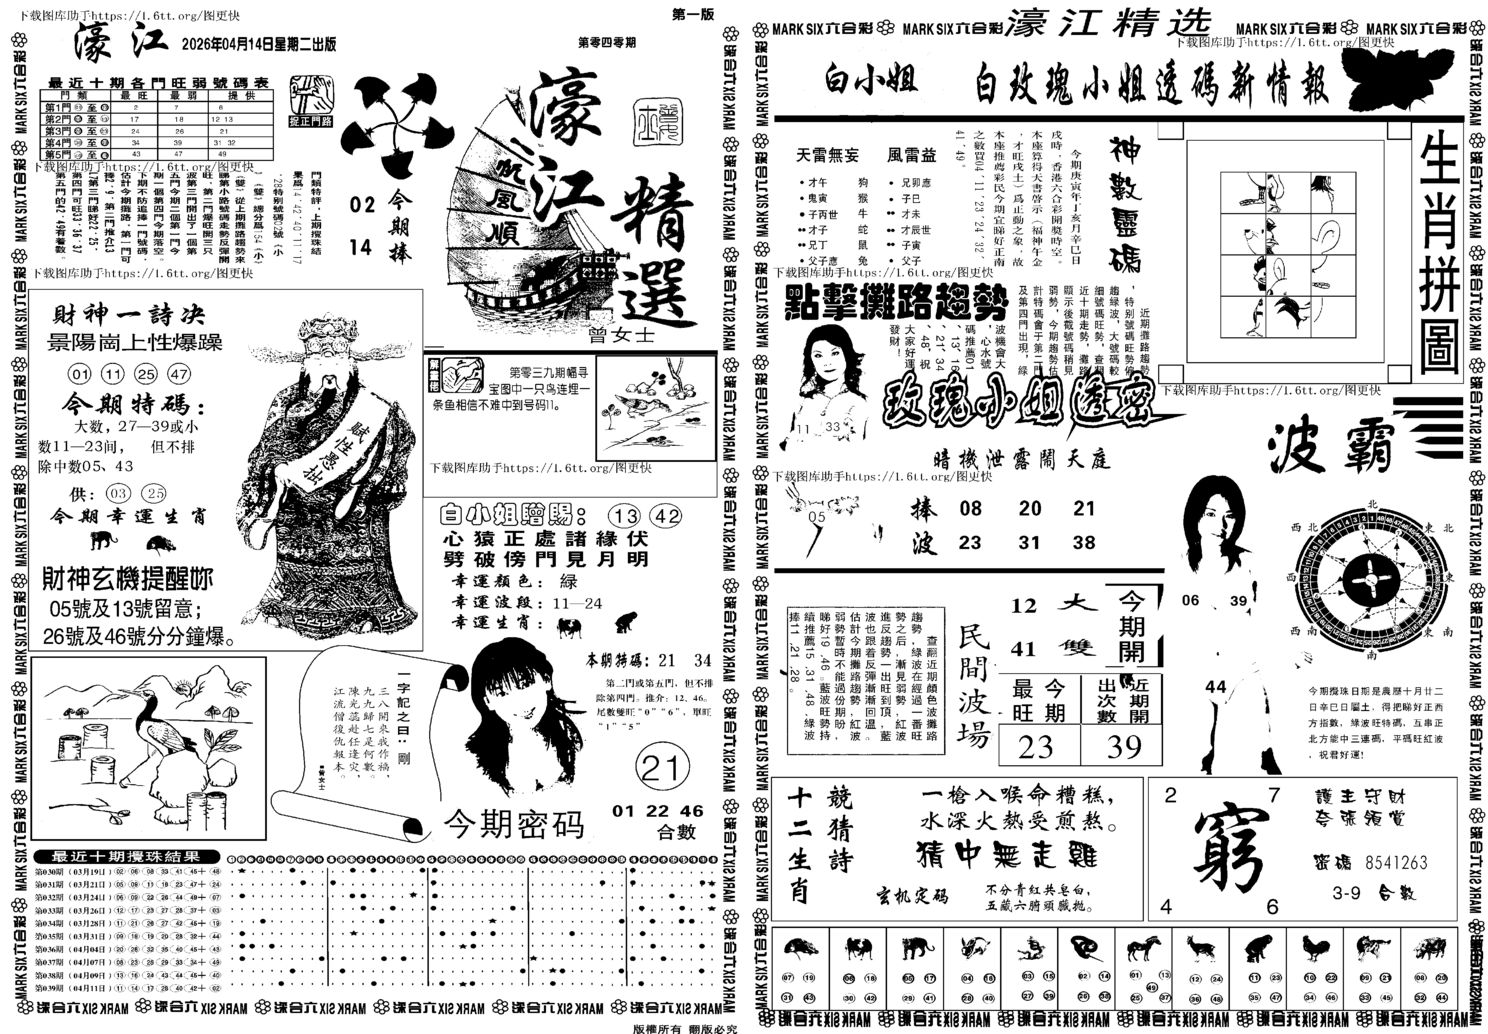 下载图库助手https://1.6tt.org/图更快
第一版
濠江
2026年04月14日星期二出版
第零四零期
最近十期各門旺弱號碼表
門類 最旺 最弱 提供
第1門 至 2 7 6
第2門 至 17 18 12 13
第3門 至 24 26 21
第4門 至 34 39 31 32
第5門 至 43 47 49
捉正門路
下载图库助手https://1.6tt.org/图更快
今期捧
02
14
濠江精選
帆風順
曾女士
下载图库助手https://1.6tt.org/图更快
財神一詩决
景陽崗上性爆躁
01 11 25 47
今期特碼：
大数，27—39或小
数11—23间， 但不排
除中数05、43
供：03 25
今期幸運生肖
財神玄機提醒妳
05號及13號留意；
26號及46號分分鐘爆。
賦性愚拙
第零三九期幅寻
宝图中一只鸟连埋一
条鱼相信不难中到号码11。
下载图库助手https://1.6tt.org/图更快
白小姐贈賜：13 42
心猿正處諸緣伏
劈破傍門見月明
幸運顏色：緑
幸運波段：11—24
幸運生肖：
本期特碼：21 34
第二門或第五門，但不排
除第四門。推介：12、46。
尾數雙旺“0”“6”，單旺
“1”“5”
21
01 22 46
合數
今期密码
一字記之曰：剛
三八開來我作禍，
九九歸七是何數。
陳光蕊赴任逢灾，
江流僧復仇報本。
曾女士
最近十期攪珠結果
第030期（03月19日）02 06 08 33 41 45＋48
第031期（03月21日）05 09 11 18 23 47＋24
第032期（03月24日）06 09 22 26 44 49＋07
第033期（03月26日）12 17 23 27 28 37＋03
第034期（03月28日）11 21 26 27 42 46＋19
第035期（03月31日）09 19 20 28 32＋44
第036期（04月04日）20 26 32 35 40 45＋43
第037期（04月07日）06 23 28 29 33 34＋49
第038期（04月09日）13 16 24 43 44 45＋40
第039期（04月11日）11 14 17 28 40 42＋02
版權所有 翻版必究
MARK SIX六合彩
濠江精选
下载图库助手https://1.6tt.org/图更快
白小姐 白玫瑰小姐透碼新情報
天雷無妄 風雷益
才午 狗 兄卯應
鬼寅 猴 子巳
子丙世 牛 才未
才子 蛇 才辰世
兄丁 鼠 子寅
父子應 兔 父子
神數靈碼
今期庚寅年丁亥月辛巳日
戌時，香港六合彩開獎時空。
本座算得天書啓示（福神午金
，才旺戌土）爲正動之象，故
本座推薦彩民今期宜睇好正南
之敬買04、11、23、24、32、
41、49。
生肖拼圖
下载图库助手https://1.6tt.org/图更快
點擊攤路趨勢
近期攤路趨勢
，特别號碼旺勢偏
趨緑波，大號碼較
細號碼旺勢，查閱
近十期走勢，攤路
顯示後截號碼稍見
弱勢，今期趨勢估
計特碼會于第二門
及第四門出現，緑
波機會大
、心水號
碼推薦01
、13、16
、21、34
、48，祝
大家好運
發財！
11 33
玫瑰小姐透密
暗機泄露鬧天庭
下载图库助手https://1.6tt.org/图更快
05
捧 08 20 21
波 23 31 38
下载图库助手https://1.6tt.org/图更快
波霸
北
東北
東
東南
南
西南
西
西北
06 39
44
今期攪珠日期是農歷十月廿二
日辛巳日屬土，得把睇好正西
方指數，緑波旺特碼，互串正
北方能中三連碼，平碼旺紅波
，祝君好運！
查翻近期顏色波攤路
趨勢，緑波在經過一波旺
勢之后，漸見弱勢，紅番
進反趨勢一出旺到頂，藍波
波也跟着反彈漸漸回温。
估計今期攤路趨勢紅波
弱勢暫時不能過份期盼，
睇好19、46。藍波旺勢持
續推薦15、31、48，緑波
捧11、21、28。
民間波場
12 大
41 雙
今期開
最旺 今期
出次數 近期開
23 39
十二生肖
競猜詩
一槍入喉命糟糕，
水深火熱受煎熬。
猜中無走雞
玄机定码
不分青紅共皂白，
五藏六腑頭臟抛。
2 7
窮
4 6
護主守財
夸張領賞
密碼 8541263
3-9 合數
07 19 31 43
06 18 30 42
05 17 29 41
04 16 28 40
03 15 27 39
02 14 26 38
01 13 49 25 37
12 24 36 48
11 23 35 47
10 22 34 46
09 21 33 45
08 20 32 44